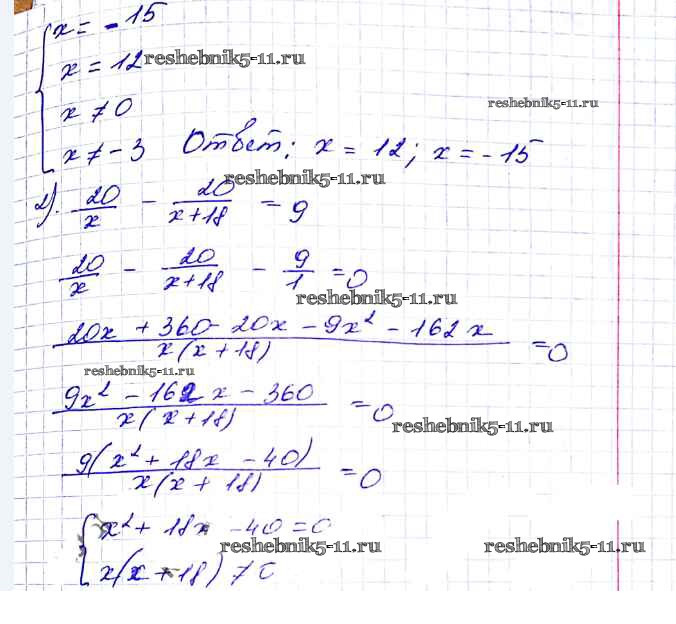 x = - 15
x = 12 reshebnik5-11.ru
x ≠ 0 reshebnik5-11.ru
x ≠ - 3 Ответ: x = 12; x = - 15
reshebnik5-11.ru
2). 20/x - 20/(x+18) = 9
20/x - 20/(x+18) - 9/1 = 0
reshebnik5-11.ru
(20x + 360 - 20x - 9x² - 162x)/(x(x+18)) = 0
reshebnik5-11.ru
(9x² - 162x - 360)/(x(x+18)) = 0
reshebnik5-11.ru
9(x² + 18x - 40)/(x(x+18)) = 0
x² + 18x - 40 = 0
reshebnik5-11.ru reshebnik5-11.ru
x(x+18) ≠ 0